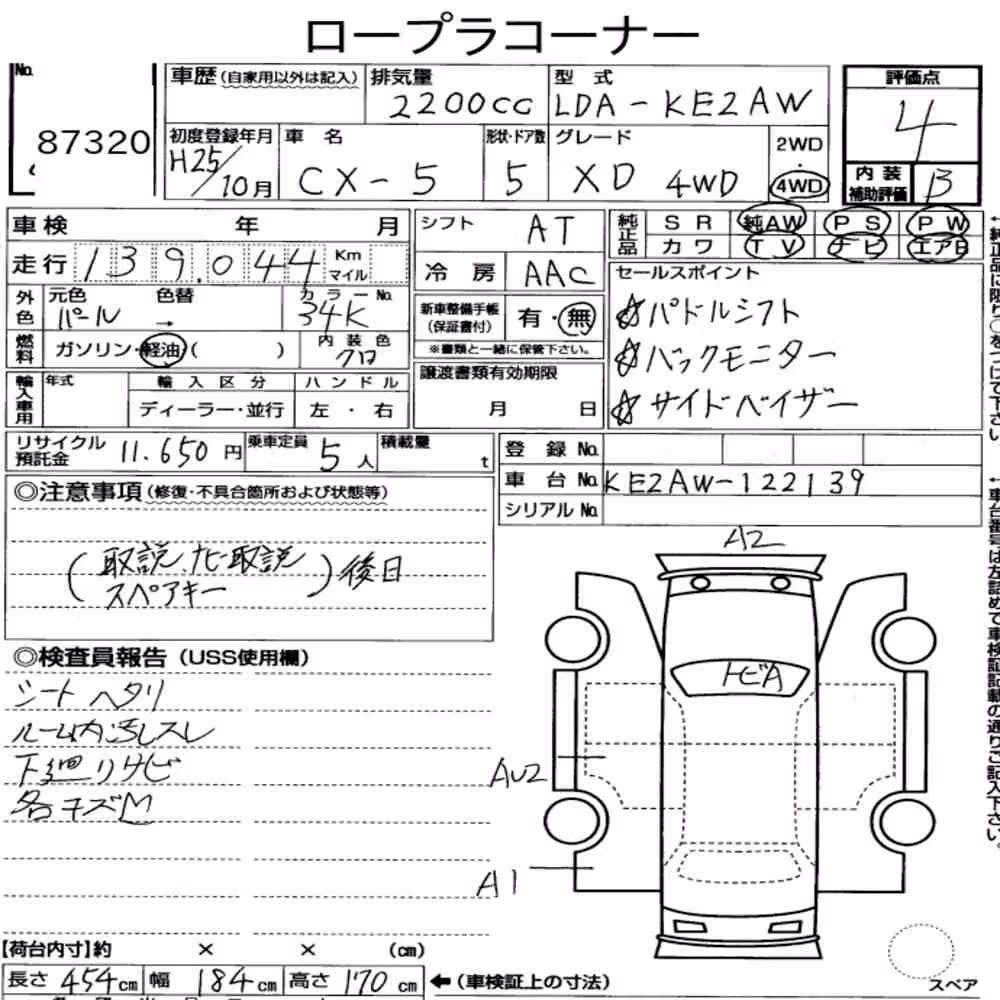 ロープラコーナー
No.
87320
車歴(自家用以外は記入)
排気量
2200cc
型式
LDA-KE2AW
評価点
4
初度登録年月
H25/10月
車名
CX-5
形状・ドア数
5
グレード
XD 4WD
2WD
・
4WD
内装
補助評価
B
車検 年 月
シフト
AT
純正品
SR 純AW PS PW
カワ TV ナビ エアB
走行 139,044 Km
マイル
冷房
AAC
セールスポイント
☆パドルシフト
☆バックモニター
☆サイドバイザー
外色
元色 パール
色替 →
カラーNo.
34K
新車整備手帳
(保証書付)
有・無
※書類と一緒に保管下さい。
燃料
ガソリン・軽油( )
内装色
クロ
輸入車用
年式
輸入区分
ディーラー・並行
ハンドル
左・右
譲渡書類有効期限
月 日
リサイクル
預託金
11.650円
乗車定員
5人
積載量
t
登録No.
車台No. KE2AW-122139
シリアルNo.
◎注意事項(修復・不具合箇所および状態等)
(取説、ナビ取説
スペアキー)後日
◎検査員報告(USS使用欄)
シートヘタリ
ルーム内汚レスレ
下廻リサビ
各キズM
A2
トビA
AU2
A1
【荷台内寸】約 × × (cm)
長さ 454cm 幅 184cm 高さ 170cm ←(車検証上の寸法)
スペア
↑純正品に限り○をつけて下さい。
↑車台番号は左詰めで車検証記載の通りご記入下さい。